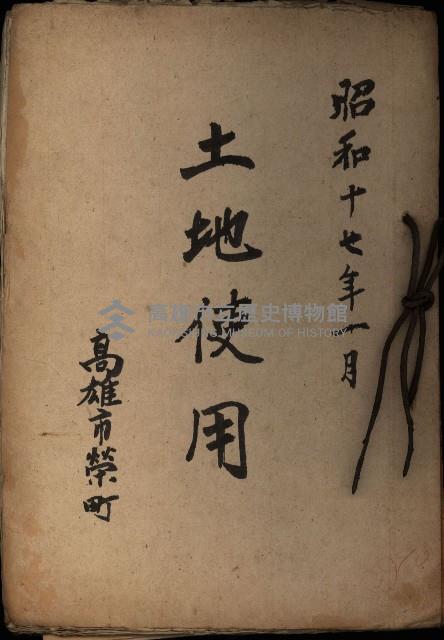 昭和十七年一月
土地使用
高雄市榮町
高雄市立歷史博物館
KAOHSIUNG MUSEUM OF HISTORY